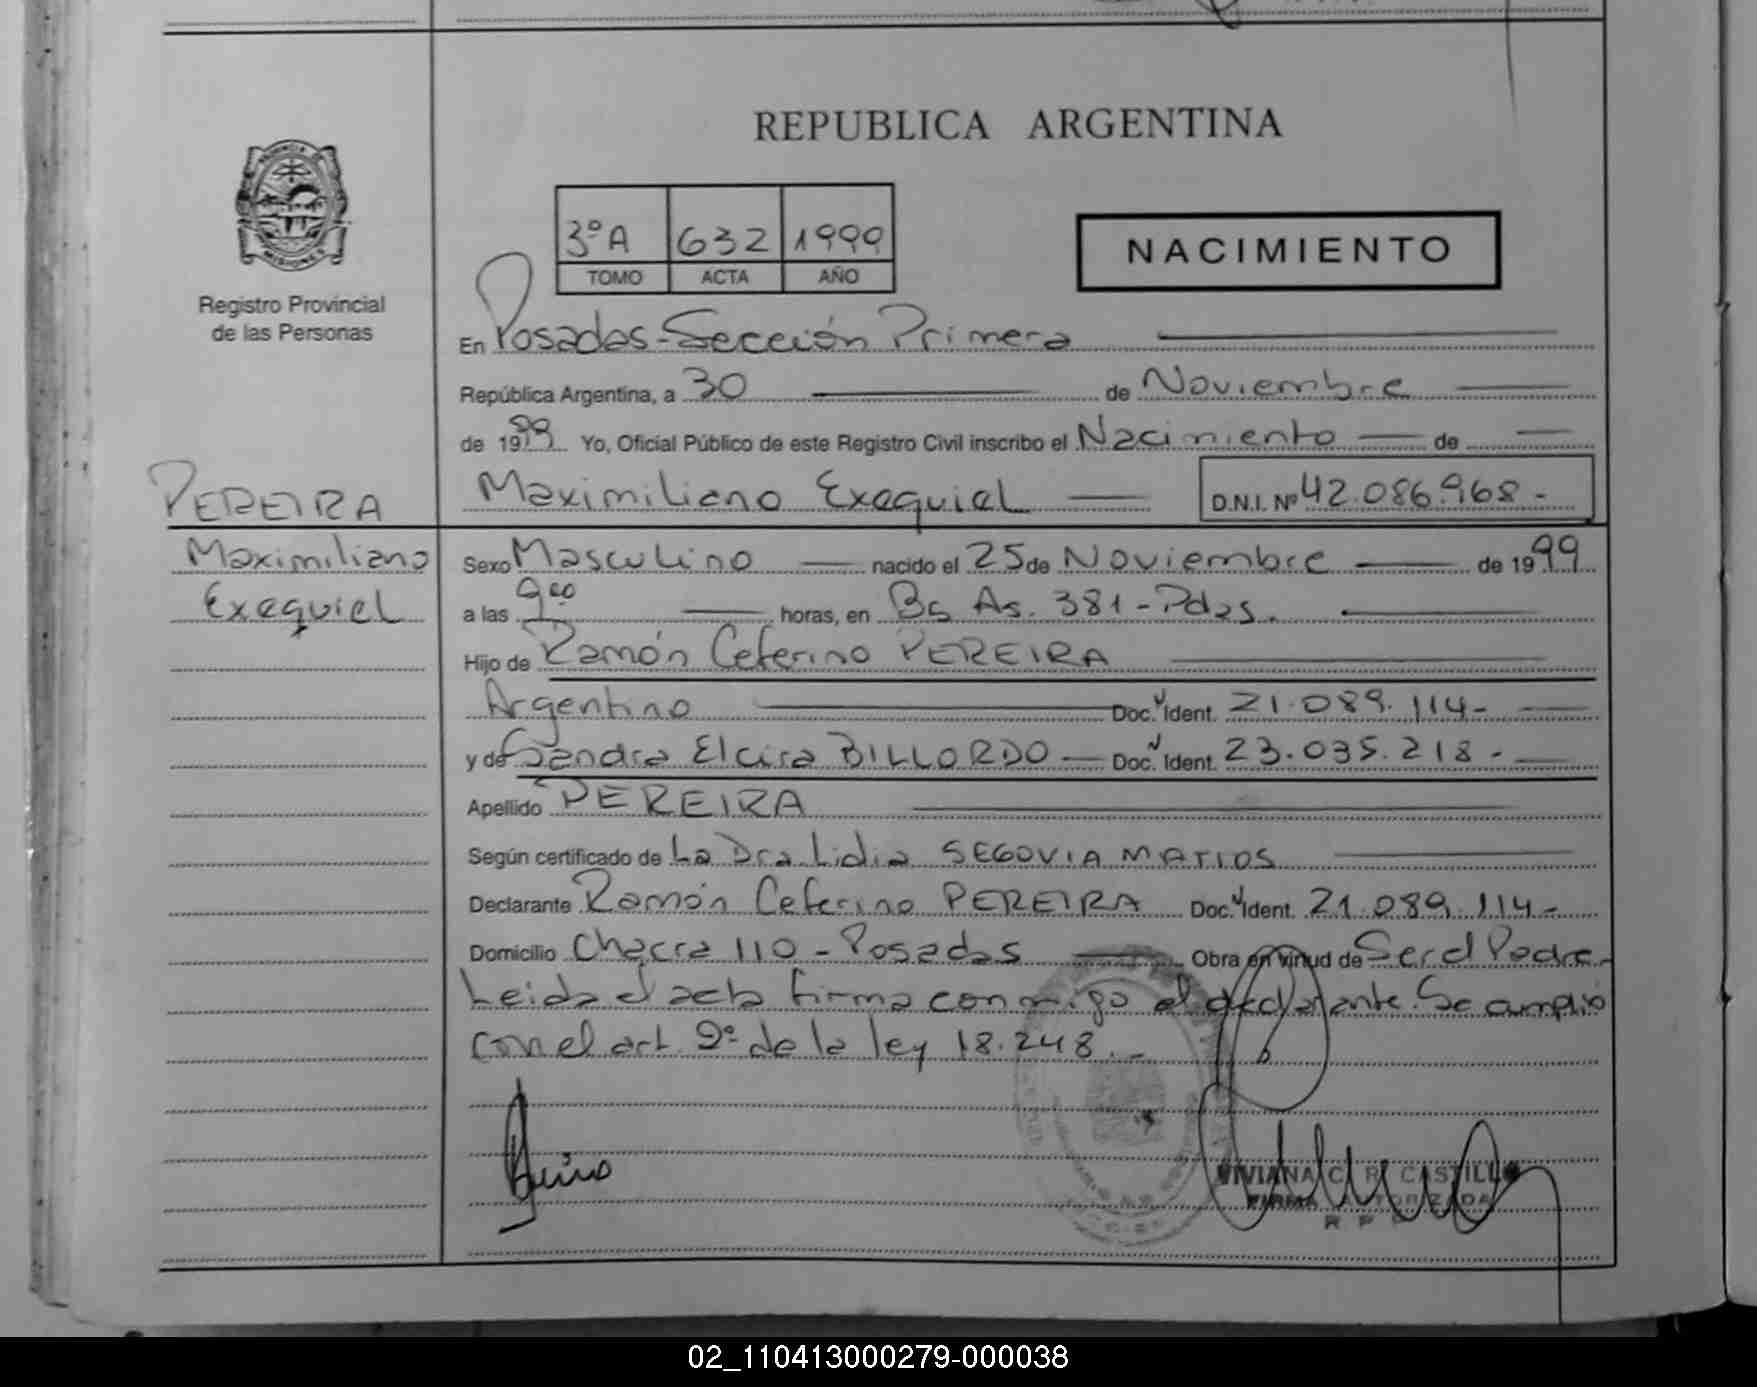 REPUBLICA ARGENTINA
PROVINCIA DE
MISIONES
Registro Provincial
de las Personas
3º A 632 1999
TOMO ACTA AÑO
NACIMIENTO
En Posadas-Sección Primera
República Argentina, a 30 de Noviembre
de 1999 Yo, Oficial Público de este Registro Civil inscribo el Nacimiento de
PEREIRA
Maximiliano Exequiel D.N.I. Nº 42.086.968-
Maximiliano
Exequiel
Sexo Masculino nacido el 25 de Noviembre de 1999
a las 9 00 horas, en Bs As. 381-Pdas.
Hijo de Ramón Ceferino PEREIRA
Argentino Doc. N Ident. 21.089.114-
y de Sandra Elcira BILLORDO Doc. N Ident. 23.035.218-
Apellido PEREIRA
Según certificado de La Dra Lidia SEGOVIA MATIOS
Declarante Ramón Ceferino PEREIRA Doc. N Ident. 21.089.114-
Domicilio Chacra 110-Posadas Obra en virtud de Ser el Padre-
Leida el acta firma conmigo el declarante. Se cumplió
con el art. 9º de la ley 18.248.-
VIVIANA C. R. CASTILLO
FIRMA AUTORIZADA
R P
02_110413000279-000038